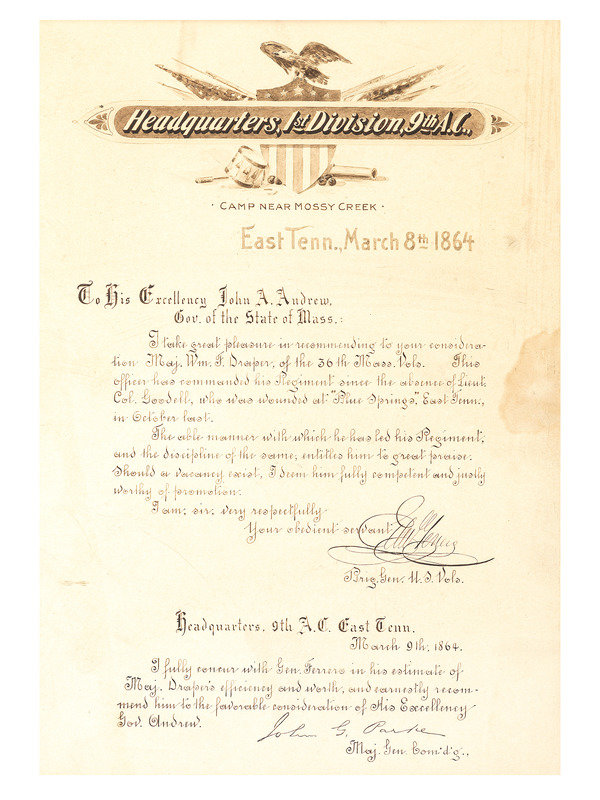 Headquarters, 1st Division, 9th A.C.,
· CAMP NEAR MOSSY CREEK ·
East Tenn., March 8th 1864
To His Excellency John A. Andrew,
Gov. of the State of Mass.:
I take great pleasure in recommending to your considera-
tion Maj. Wm. F. Draper, of the 36th Mass. Vols. This
officer has commanded his Regiment since the absence of Lieut.
Col. Goodell, who was wounded at "Blue Springs," East Tenn.,
in October last.
The able manner with which he has led his Regiment,
and the discipline of the same, entitles him to great praise.
Should a vacancy exist, I deem him fully competent and justly
worthy of promotion.
I am, sir, very respectfully
Your obedient servant
Brig. Gen. U.S. Vols.
Headquarters. 9th A.C. East Tenn.
March 9th, 1864.
I fully concur with Gen. Ferrero in his estimate of
Maj. Draper's efficiency and worth, and earnestly recom-
mend him to the favorable consideration of His Excellency
Gov. Andrew.
John G. Parke
Maj. Gen. Com'd'g.,